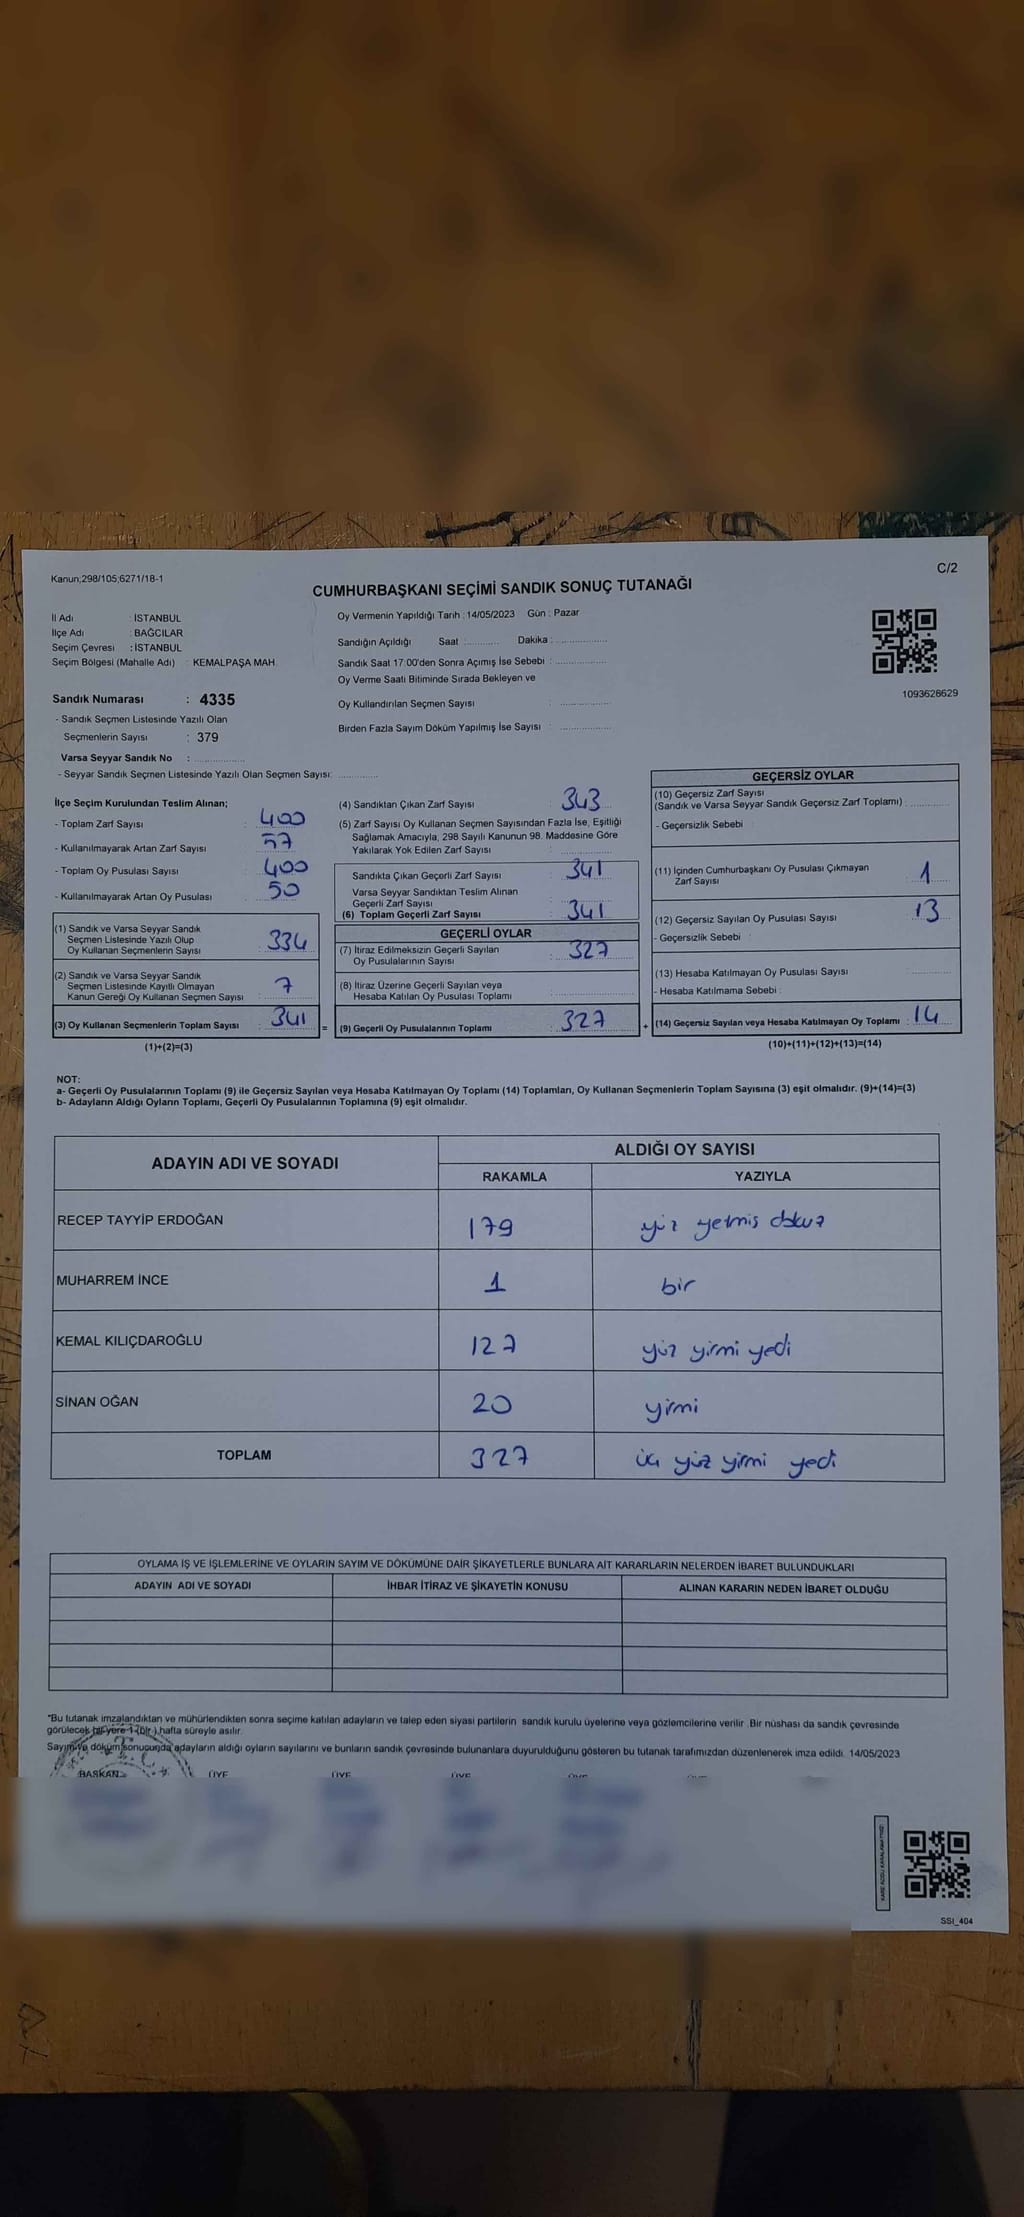 Kanun;298/105;6271/18-1
C/2
CUMHURBAŞKANI SEÇİMİ SANDIK SONUÇ TUTANAĞI
İl Adı : İSTANBUL
İlçe Adı : BAĞCILAR
Seçim Çevresi : İSTANBUL
Seçim Bölgesi (Mahalle Adı) : KEMALPAŞA MAH.
Oy Vermenin Yapıldığı Tarih : 14/05/2023 Gün : Pazar
Sandığın Açıldığı Saat :........... Dakika :...............
Sandık Saat 17:00'den Sonra Açımış İse Sebebi :...............
Oy Verme Saati Bitiminde Sırada Bekleyen ve
Oy Kullandırılan Seçmen Sayısı :...............
Birden Fazla Sayım Döküm Yapılmış İse Sayısı :...............
1093628629
Sandık Numarası : 4335
- Sandık Seçmen Listesinde Yazılı Olan
Seçmenlerin Sayısı : 379
Varsa Seyyar Sandık No :...............
- Seyyar Sandık Seçmen Listesinde Yazılı Olan Seçmen Sayısı: ............
İlçe Seçim Kurulundan Teslim Alınan;
- Toplam Zarf Sayısı : 400
- Kullanılmayarak Artan Zarf Sayısı : 57
- Toplam Oy Pusulası Sayısı : 400
- Kullanılmayarak Artan Oy Pusulası : 50
(1) Sandık ve Varsa Seyyar Sandık
Seçmen Listesinde Yazılı Olup
Oy Kullanan Seçmenlerin Sayısı : 334
(2) Sandık ve Varsa Seyyar Sandık
Seçmen Listesinde Kayıtlı Olmayan
Kanun Gereği Oy Kullanan Seçmen Sayısı : 7
(3) Oy Kullanan Seçmenlerin Toplam Sayısı : 341 =
(1)+(2)=(3)
(4) Sandıktan Çıkan Zarf Sayısı : 343
(5) Zarf Sayısı Oy Kullanan Seçmen Sayısından Fazla İse, Eşitliği
Sağlamak Amacıyla, 298 Sayılı Kanunun 98. Maddesine Göre
Yakılarak Yok Edilen Zarf Sayısı :...............
Sandıkta Çıkan Geçerli Zarf Sayısı : 341
Varsa Seyyar Sandıktan Teslim Alınan
Geçerli Zarf Sayısı
(6) Toplam Geçerli Zarf Sayısı : 341
GEÇERLİ OYLAR
(7) İtiraz Edilmeksizin Geçerli Sayılan
Oy Pusulalarının Sayısı : 327
(8) İtiraz Üzerine Geçerli Sayılan veya
Hesaba Katılan Oy Pusulası Toplamı :...............
(9) Geçerli Oy Pusulalarının Toplamı : 327 +
GEÇERSİZ OYLAR
(10) Geçersiz Zarf Sayısı
(Sandık ve Varsa Seyyar Sandık Geçersiz Zarf Toplamı) :............
- Geçersizlik Sebebi :
(11) İçinden Cumhurbaşkanı Oy Pusulası Çıkmayan
Zarf Sayısı : 1
(12) Geçersiz Sayılan Oy Pusulası Sayısı : 13
- Geçersizlik Sebebi :
(13) Hesaba Katılmayan Oy Pusulası Sayısı :............
- Hesaba Katılmama Sebebi :
(14) Geçersiz Sayılan veya Hesaba Katılmayan Oy Toplamı : 14
(10)+(11)+(12)+(13)=(14)
NOT:
a- Geçerli Oy Pusulalarının Toplamı (9) ile Geçersiz Sayılan veya Hesaba Katılmayan Oy Toplamı (14) Toplamları, Oy Kullanan Seçmenlerin Toplam Sayısına (3) eşit olmalıdır. (9)+(14)=(3)
b- Adayların Aldığı Oyların Toplamı, Geçerli Oy Pusulalarının Toplamına (9) eşit olmalıdır.
ADAYIN ADI VE SOYADI ALDIĞI OY SAYISI
RAKAMLA YAZIYLA
RECEP TAYYİP ERDOĞAN 179 yüz yetmiş dokuz
MUHARREM İNCE 1 bir
KEMAL KILIÇDAROĞLU 127 yüz yirmi yedi
SİNAN OĞAN 20 yirmi
TOPLAM 327 üç yüz yirmi yedi
OYLAMA İŞ VE İŞLEMLERİNE VE OYLARIN SAYIM VE DÖKÜMÜNE DAİR ŞİKAYETLERLE BUNLARA AİT KARARLARIN NELERDEN İBARET BULUNDUKLARI
ADAYIN ADI VE SOYADI İHBAR İTİRAZ VE ŞİKAYETİN KONUSU ALINAN KARARIN NEDEN İBARET OLDUĞU
*Bu tutanak imzalandıktan ve mühürlendikten sonra seçime katılan adayların ve talep eden siyasi partilerin sandık kurulu üyelerine veya gözlemcilerine verilir. Bir nüshası da sandık çevresinde
görülecek bir yere 1 (bir) hafta süreyle asılır.
Sayım ve döküm sonucunda adayların aldığı oyların sayılarını ve bunların sandık çevresinde bulunanlara duyurulduğunu gösteren bu tutanak tarafımızdan düzenlenerek imza edildi. 14/05/2023
T.C.
BAŞKAN ÜYE ÜYE ÜYE
SSI_404